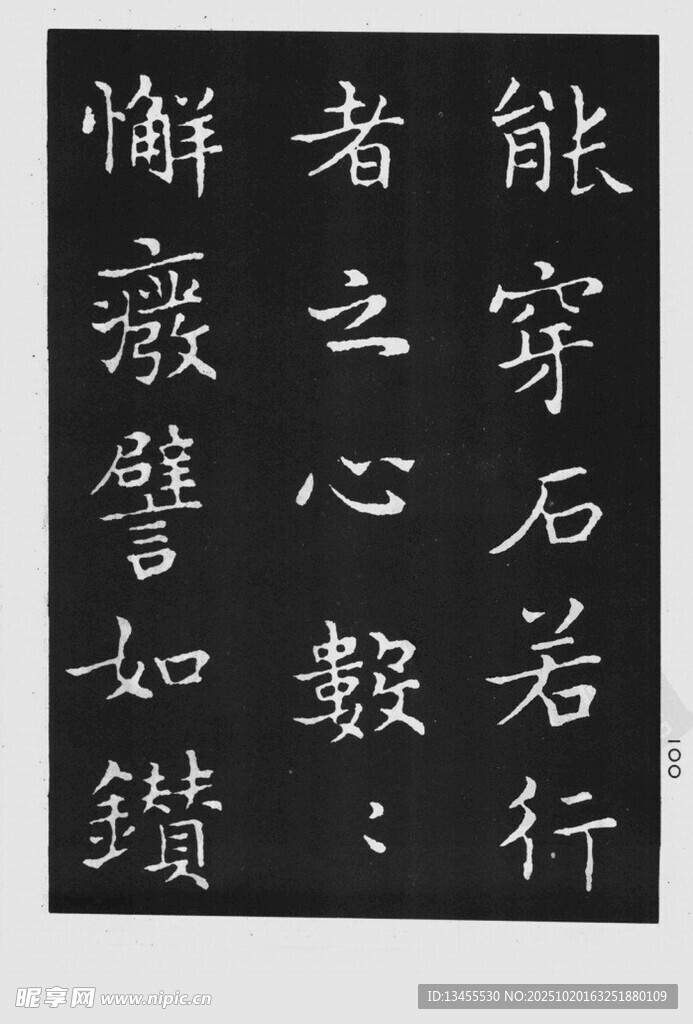 能穿石若行
者之心數〻
懈癈譬如鑚
100
昵享网 www.nipic.cn
ID:13455530 NO:20251020163251880109